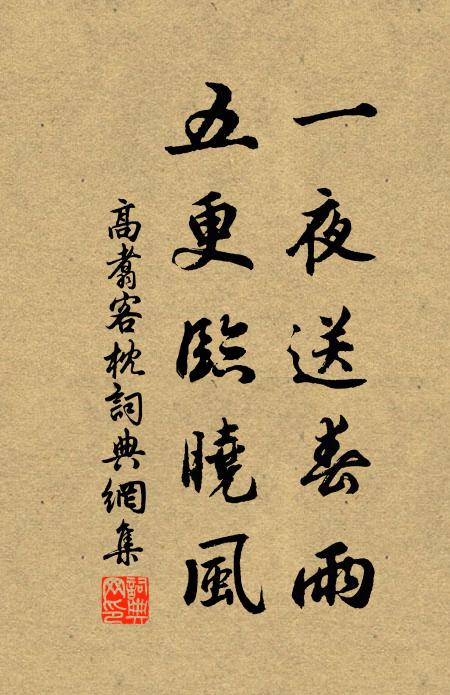 一夜送春雨
五更臨曉風
高翥客枕詞典網集
詞典網印